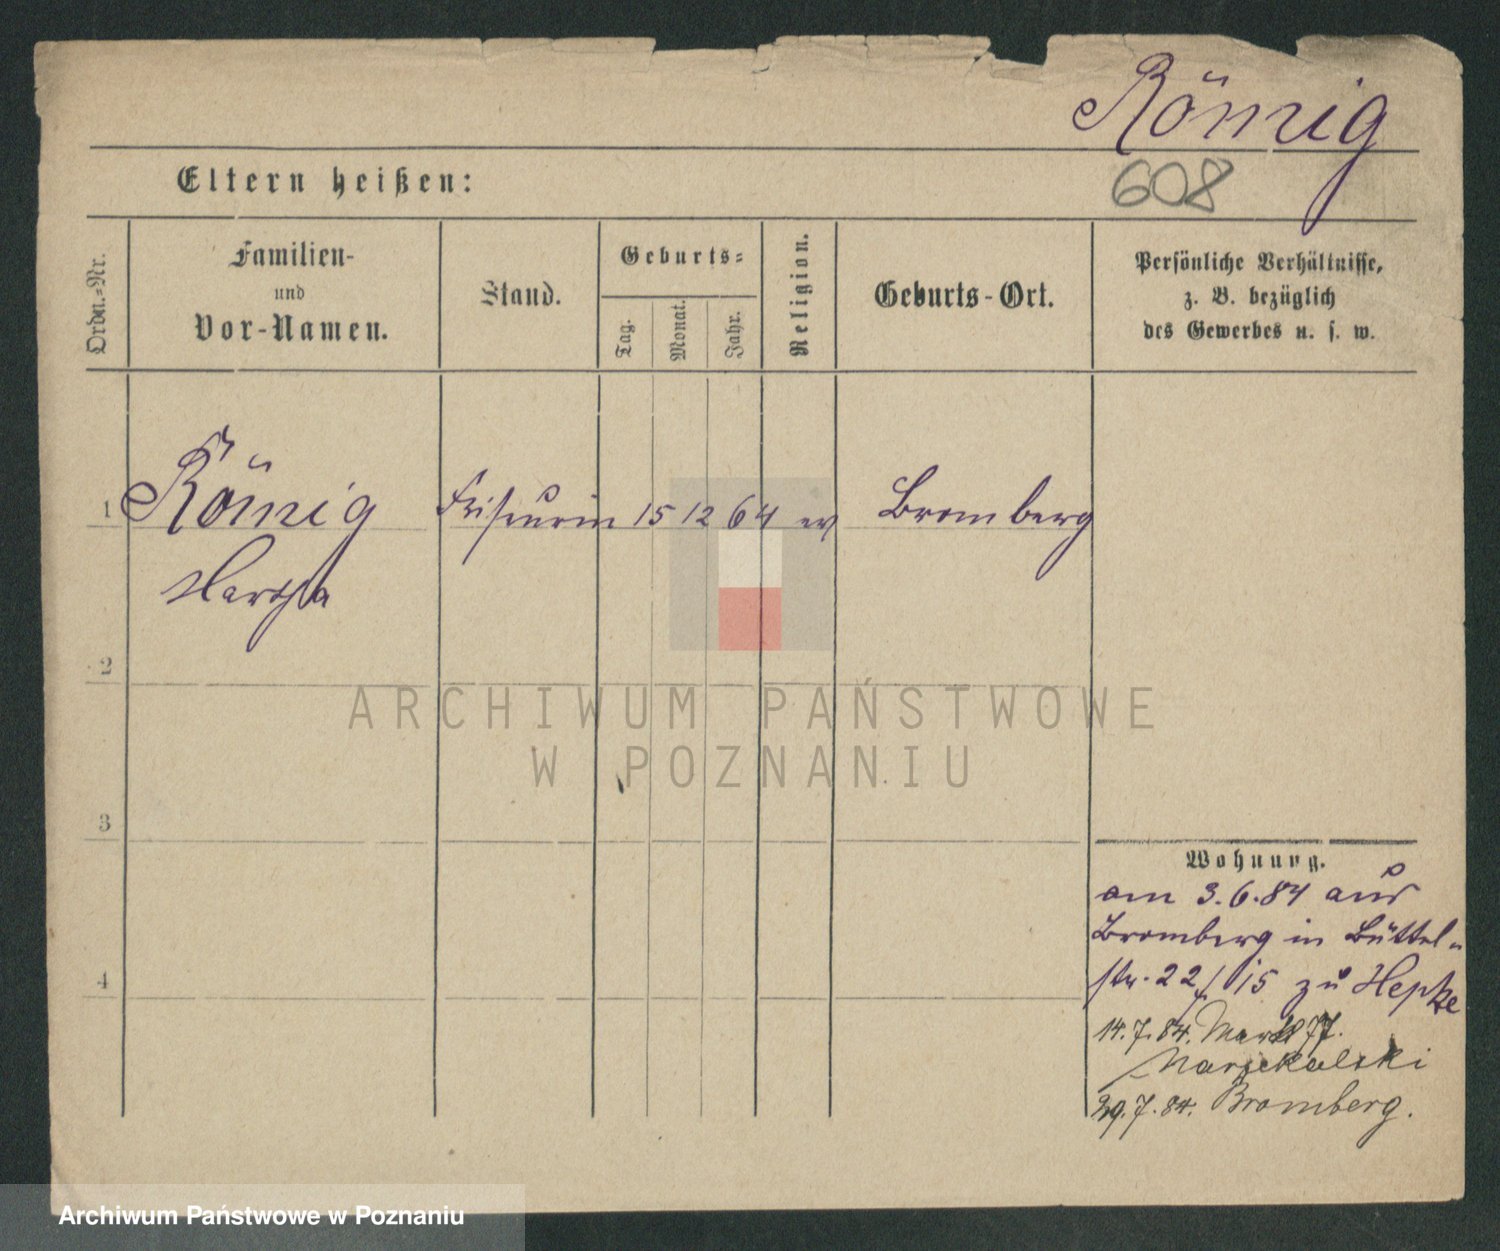 Römig
608
Eltern heißen:
Ordn.-Nr.
Familien-
und
Vor-Namen.
Stand.
Geburts-
Tag.
Monat.
Jahr.
Religion.
Geburts-Ort.
Persönliche Verhältnisse,
z. B. bezüglich
des Gewerbes u. s. w.
1 Römig Friseurin 15 12 64 ev Bromberg
2
3
4
Wohnung.
am 3.6.84 aus
Bromberg in Büttel-
str. 22/ 15 zu Hepke
14.7.84. Markt 77.
29.7.84. Bromberg.
ARCHIWUM PAŃSTWOWE
W POZNANIU
Archiwum Państwowe w Poznaniu